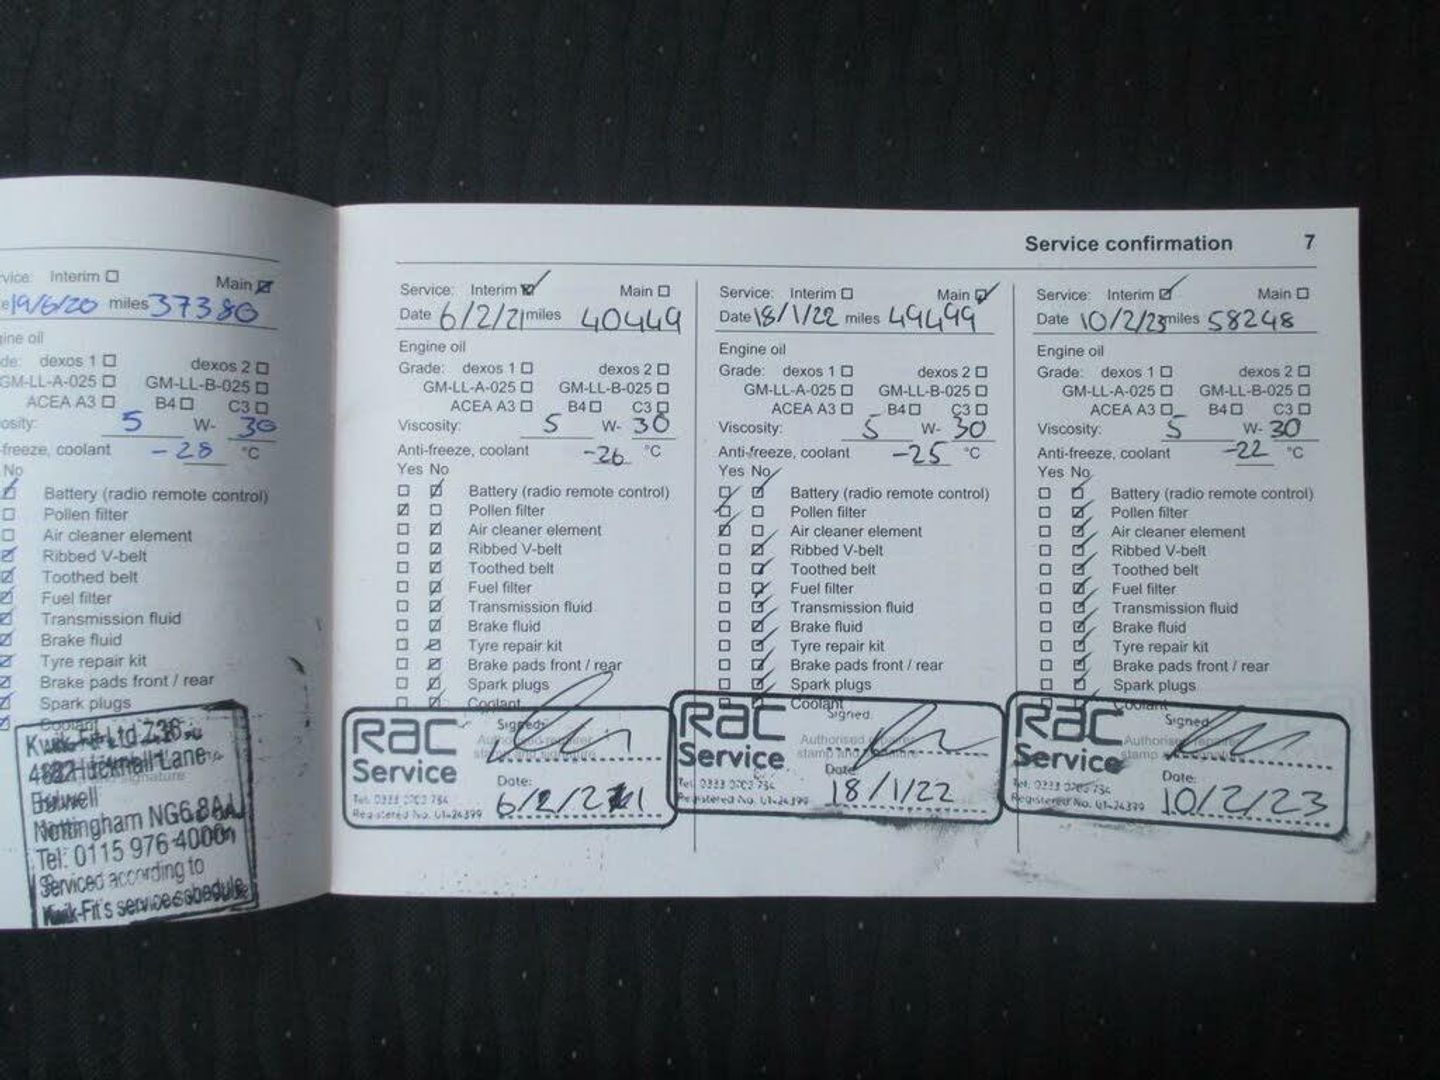 Service confirmation 7
Interim Main
19/6/20 miles 37380
oil
dexos 1 dexos 2
GM-LL-A-025 GM-LL-B-025
ACEA A3 B4 C3
5 W- 30
-freeze, coolant -28 °C
No
Battery (radio remote control)
Pollen filter
Air cleaner element
Ribbed V-belt
Toothed belt
Fuel filter
Transmission fluid
Brake fluid
Tyre repair kit
Brake pads front / rear
Spark plugs
Coolant
Kwik-Fit Ltd
Hucknall Lane
Bulwell
Nottingham NG6 8AJ
Tel: 0115 976 4000
Serviced according to
Kwik-Fit's service schedule
Service: Interim Main
Date 6/2/21 miles 40449
Engine oil
Grade: dexos 1 dexos 2
GM-LL-A-025 GM-LL-B-025
ACEA A3 B4 C3
Viscosity: 5 W- 30
Anti-freeze, coolant -26 °C
Yes No
Battery (radio remote control)
Pollen filter
Air cleaner element
Ribbed V-belt
Toothed belt
Fuel filter
Transmission fluid
Brake fluid
Tyre repair kit
Brake pads front / rear
Spark plugs
Coolant
RAC Signed:
Service
Date:
6/2/21
Service: Interim Main
Date 18/1/22 miles 49499
Engine oil
Grade: dexos 1 dexos 2
GM-LL-A-025 GM-LL-B-025
ACEA A3 B4 C3
Viscosity: 5 W- 30
Anti-freeze, coolant -25 °C
Yes No
Battery (radio remote control)
Pollen filter
Air cleaner element
Ribbed V-belt
Toothed belt
Fuel filter
Transmission fluid
Brake fluid
Tyre repair kit
Brake pads front / rear
Spark plugs
Coolant
RAC Signed.
Service
Date:
18/1/22
Service: Interim Main
Date 10/2/23 miles 58248
Engine oil
Grade: dexos 1 dexos 2
GM-LL-A-025 GM-LL-B-025
ACEA A3 B4 C3
Viscosity: 5 W- 30
Anti-freeze, coolant -22 °C
Yes No
Battery (radio remote control)
Pollen filter
Air cleaner element
Ribbed V-belt
Toothed belt
Fuel filter
Transmission fluid
Brake fluid
Tyre repair kit
Brake pads front / rear
Spark plugs
Coolant
RAC Signed:
Service
Date:
10/2/23